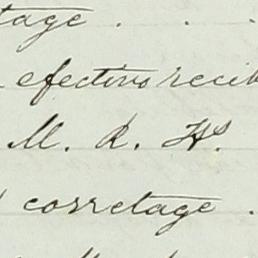 tage . . .
efectivo recib
M. R. Hs.
corretage .